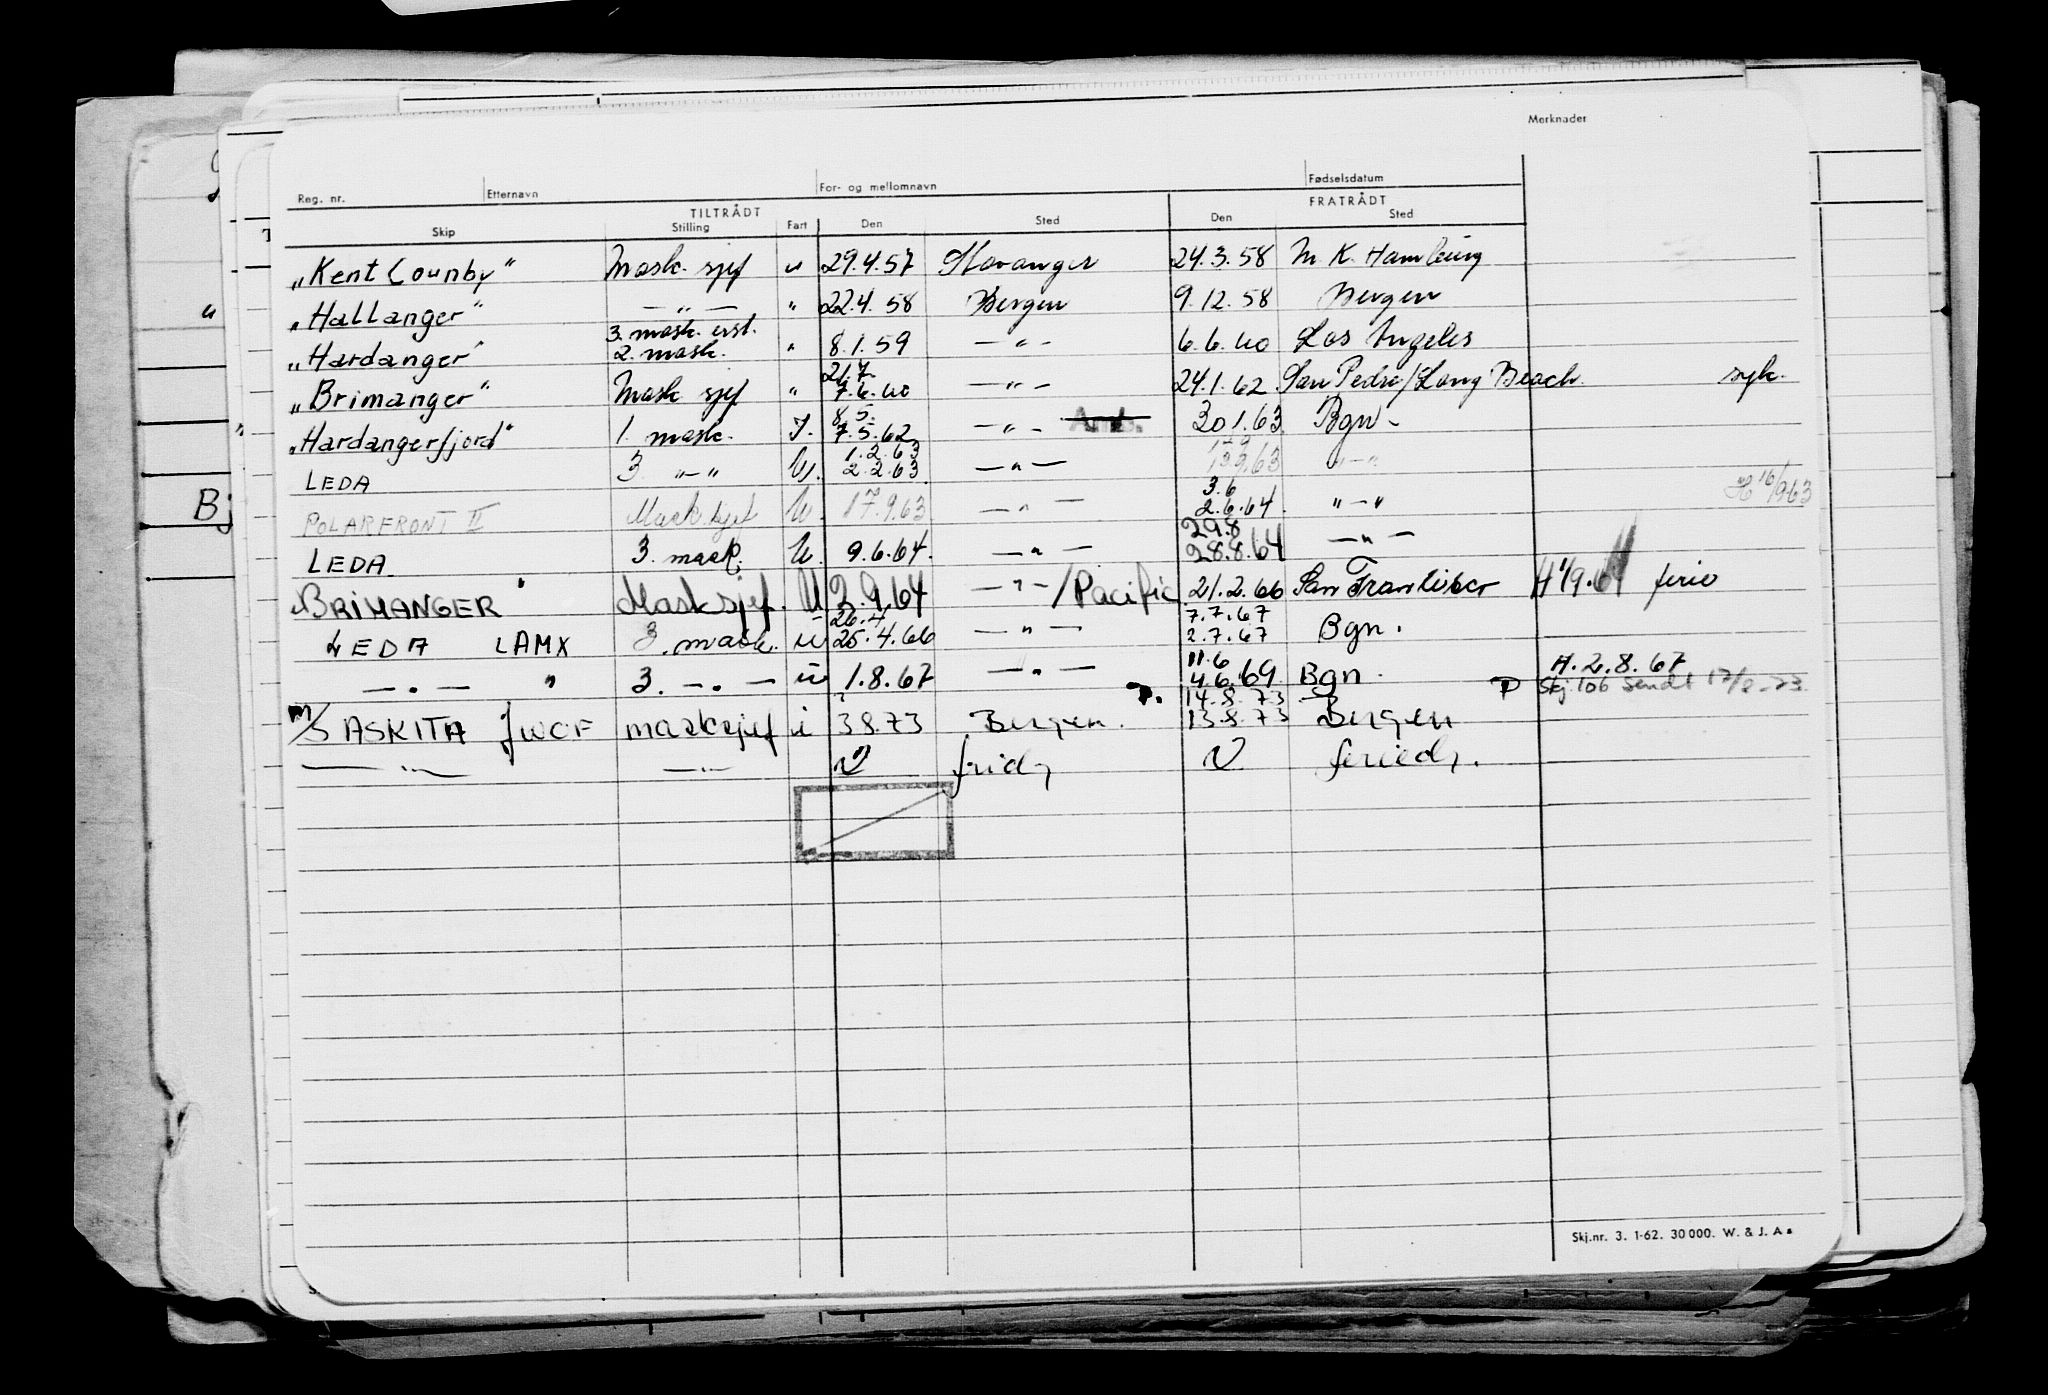 Merknader
Reg. nr. Etternavn For- og mellomnavn Fødselsdatum
TILTRÅDT FRATRÅDT
Skip Stilling Fart Den Sted Den Sted
„Kent Counby" Mask. sjef u 29.4.57 Stavanger 24.3.58 M. K. Hamburg
„Hallanger" —"— " 22.4.58 Bergen 9.12.58 Bergen
3. mask. asst.
„Hardanger" 2. mask. " 8.1.59 —"— 6.6.60 Los Angeles
21.7.
„Brimanger" Mask sjef " 7.6.60 —"— 24.1.62 San Pedro/Long Beach. syk.
8.5.
„Hardangerfjord" 1. mask. I. 7.5.62 —"— 30.1.63 Bgn.
1.2.63
LEDA 3. "—" U. 2.2.63 —"— 13.9.63 "—"
3.6
POLARFRONT II Mask.sjef U. 17.9.63 —"— 2.6.64. "—" H 16/9-63
29.8
LEDA. 3. mask. U. 9.6.64. —"— 28.8.64 —"—
BRIMANGER Masksjef. U 2.9.64 —"—/Pacific 21.2.66 San Francisco H 1/9.64 ferie
26.4 7.7.67
LEDA LAMX 3. mask. u 25.4.66 —"— 2.7.67 Bgn.
11.6 H. 2.8.67
—"— " 3. —"— u 1.8.67 —"— 4.6.69 Bgn. P Skj. 106 sendt 17/8-73.
14.8.73
M/S ASKITA JWOF masksjef i 3.8.73 Bergen. 13.8.73 Bergen
—"— —"— V frid, V feried,.
Bj
Skj.nr. 3. 1-62. 30 000. W. & J. A s